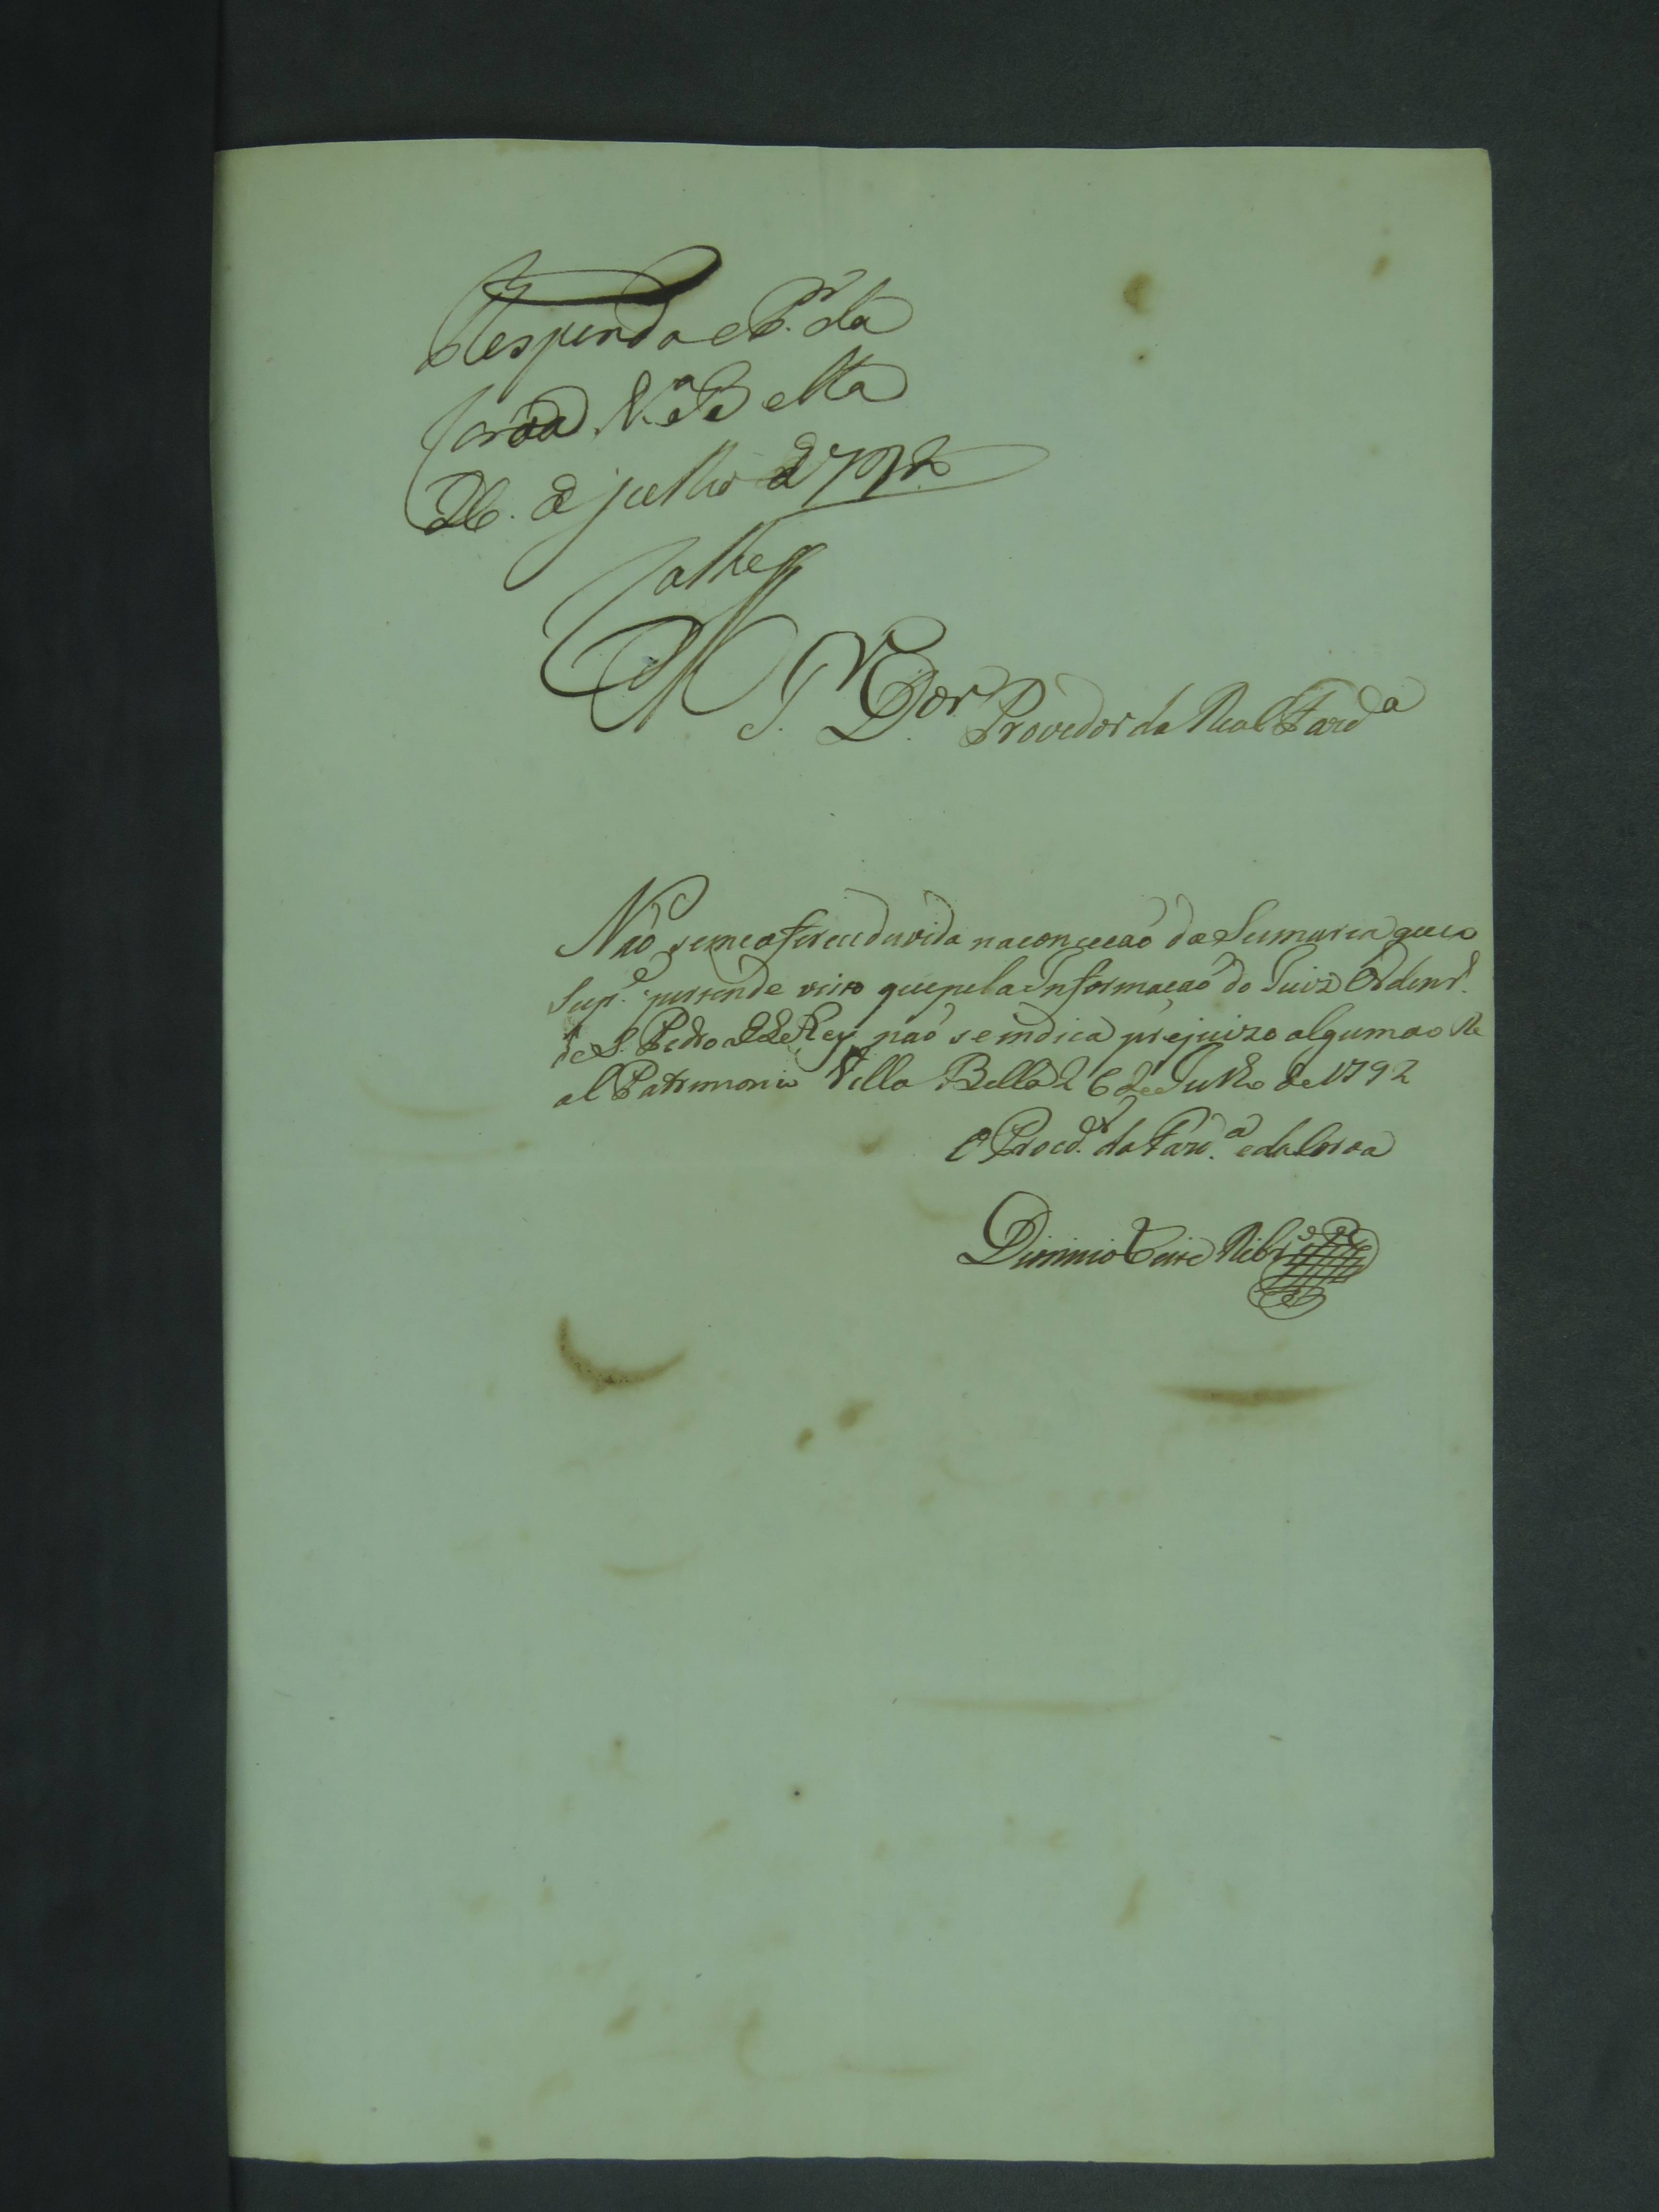 Responda o P.r da
Coroa V.a Bella
26. de Julho de 1792
S.r D.or Provedor da Real Fazd.a
Não se me oferece duvida na concecaõ da Sumaria que o
Sup.e pertende visto que pela Informacaõ do Juiz Ordenr.o
de S. Pedro de El Rey naõ se indica prejuizo algum ao Re
al Patrimonio Villa Bella 26 de Julho de 1792
O Procd.or da Fazd.a e da Coroa